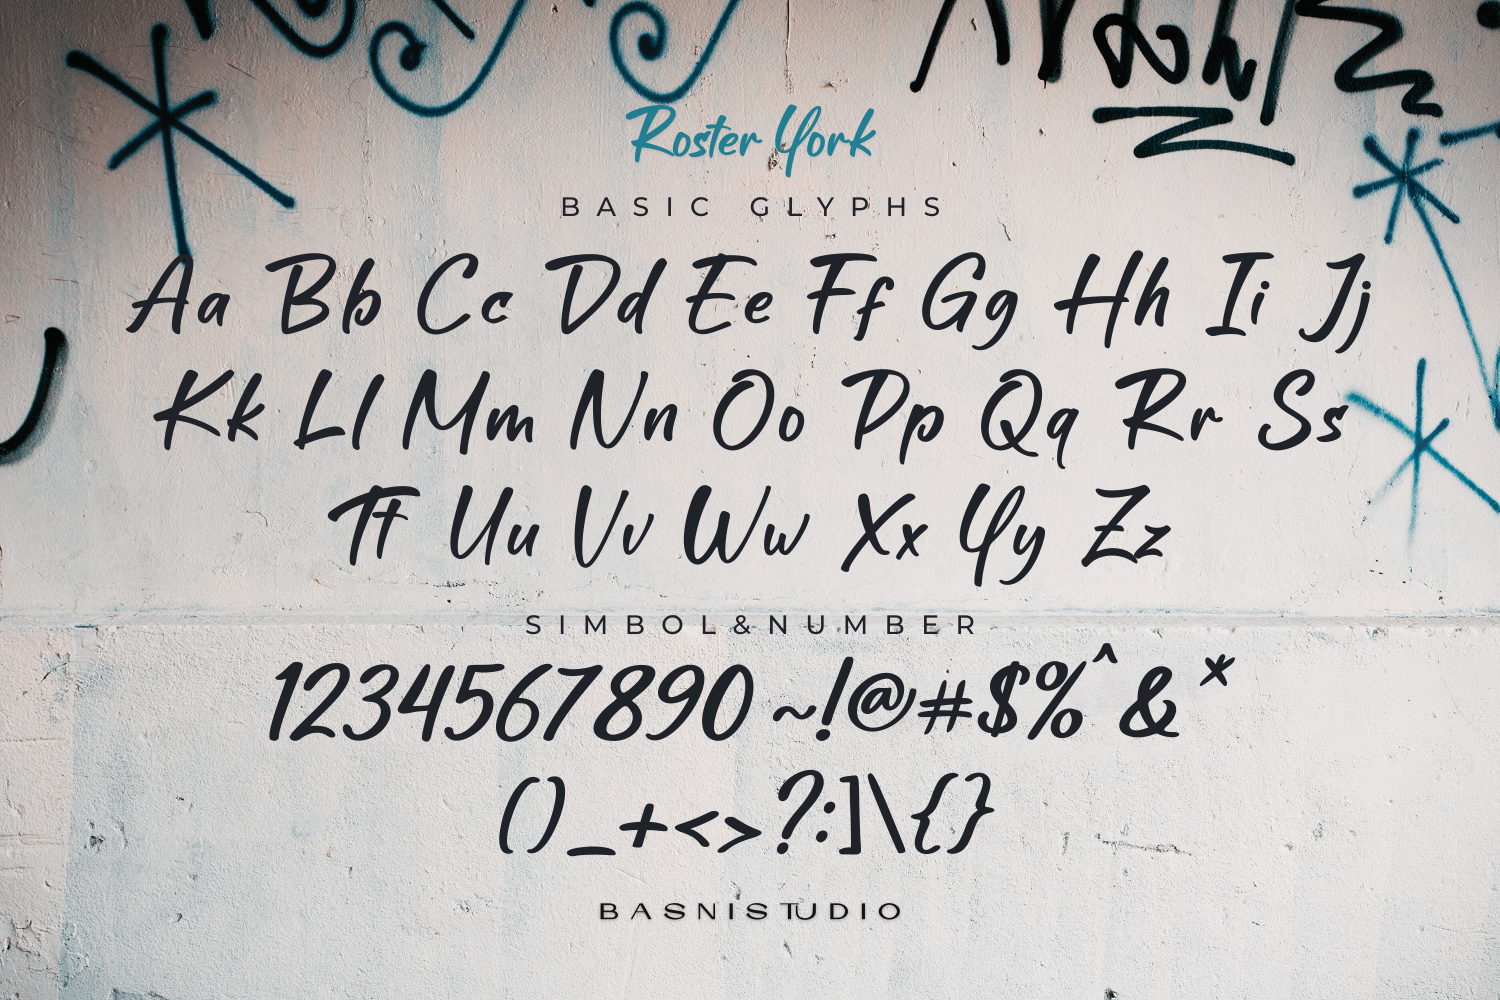 Roster York
BASIC GLYPHS
Aa Bb Cc Dd Ee Ff Gg Hh Ii Jj
Kk Ll Mm Nn Oo Pp Qq Rr Ss
Tt Uu Vv Ww Xx Yy Zz
SIMBOL&NUMBER
1234567890 ~!@#$%^&*
()_+<>?:]\{}
BASNISTUDIO